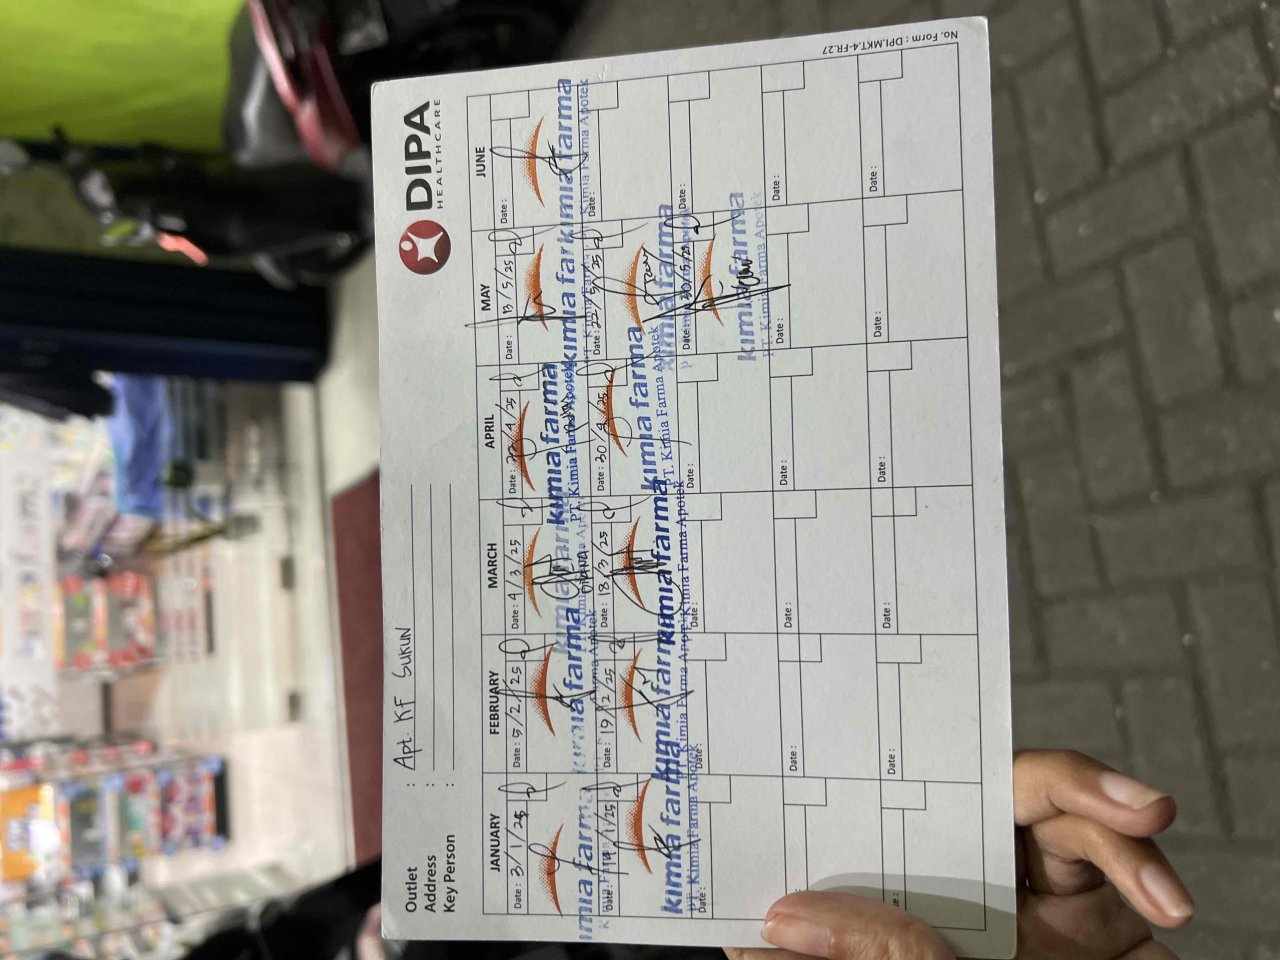 No. Form : DPI.MKT.4-FR.27
DIPA
HEALTHCARE
Outlet : Apt. KF SUKUN
Address :
Key Person :
JANUARY FEBRUARY MARCH APRIL MAY JUNE
Date : 3/1/25 Date : 5/2/25 Date : 4/3/25 Date : /4/25 Date : 13/5/25 Date :
kimia farma kimia farma kimia farma kimia farma
PT. Kimia Farma Apotek Kimia Farma Apotek
Date : /1/25 Date : 19/2/25 Date : 18/3/25 Date : 30/4/25 Date : 22/5/25 Date :
kimia farma kimia farma kimia farma kimia farma kimia farma
PT. Kimia Farma Apotek PT. Kimia Farma Apotek Kimia Farma Apotek PT. Kimia Farma Apotek
Date : Date : Date : Date : Date : 30/5/25 Date :
kimia farma
PT. Kimia Farma Apotek
Date : Date : Date : Date : Date :
Date : Date : Date : Date : Date :